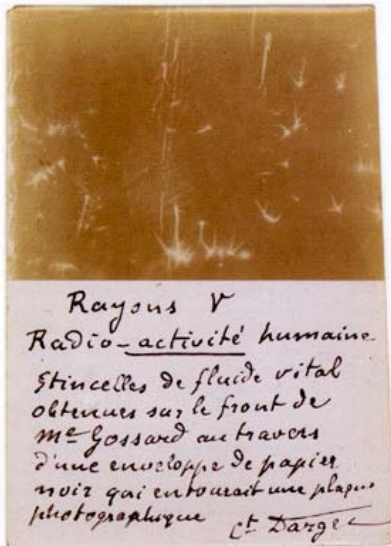 Rayons V
Radio-activité humaine
Etincelles de fluide vital
obtenues sur le front de
Me Gossard au travers
d'une enveloppe de papier
noir qui entourait une plaque
photographique
Ct Darget